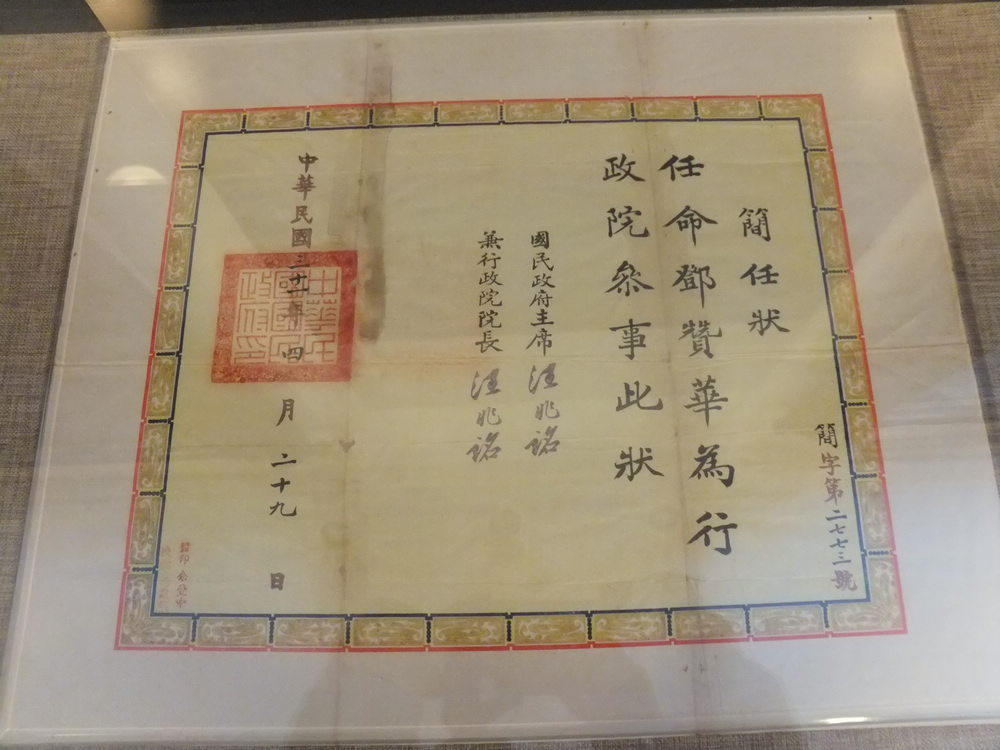 簡字第二七七三號
簡任狀
任命鄧贊華為行
政院參事此狀
國民政府主席 汪兆銘
兼行政院院長 汪兆銘
中華民國三十一年四月二十九日